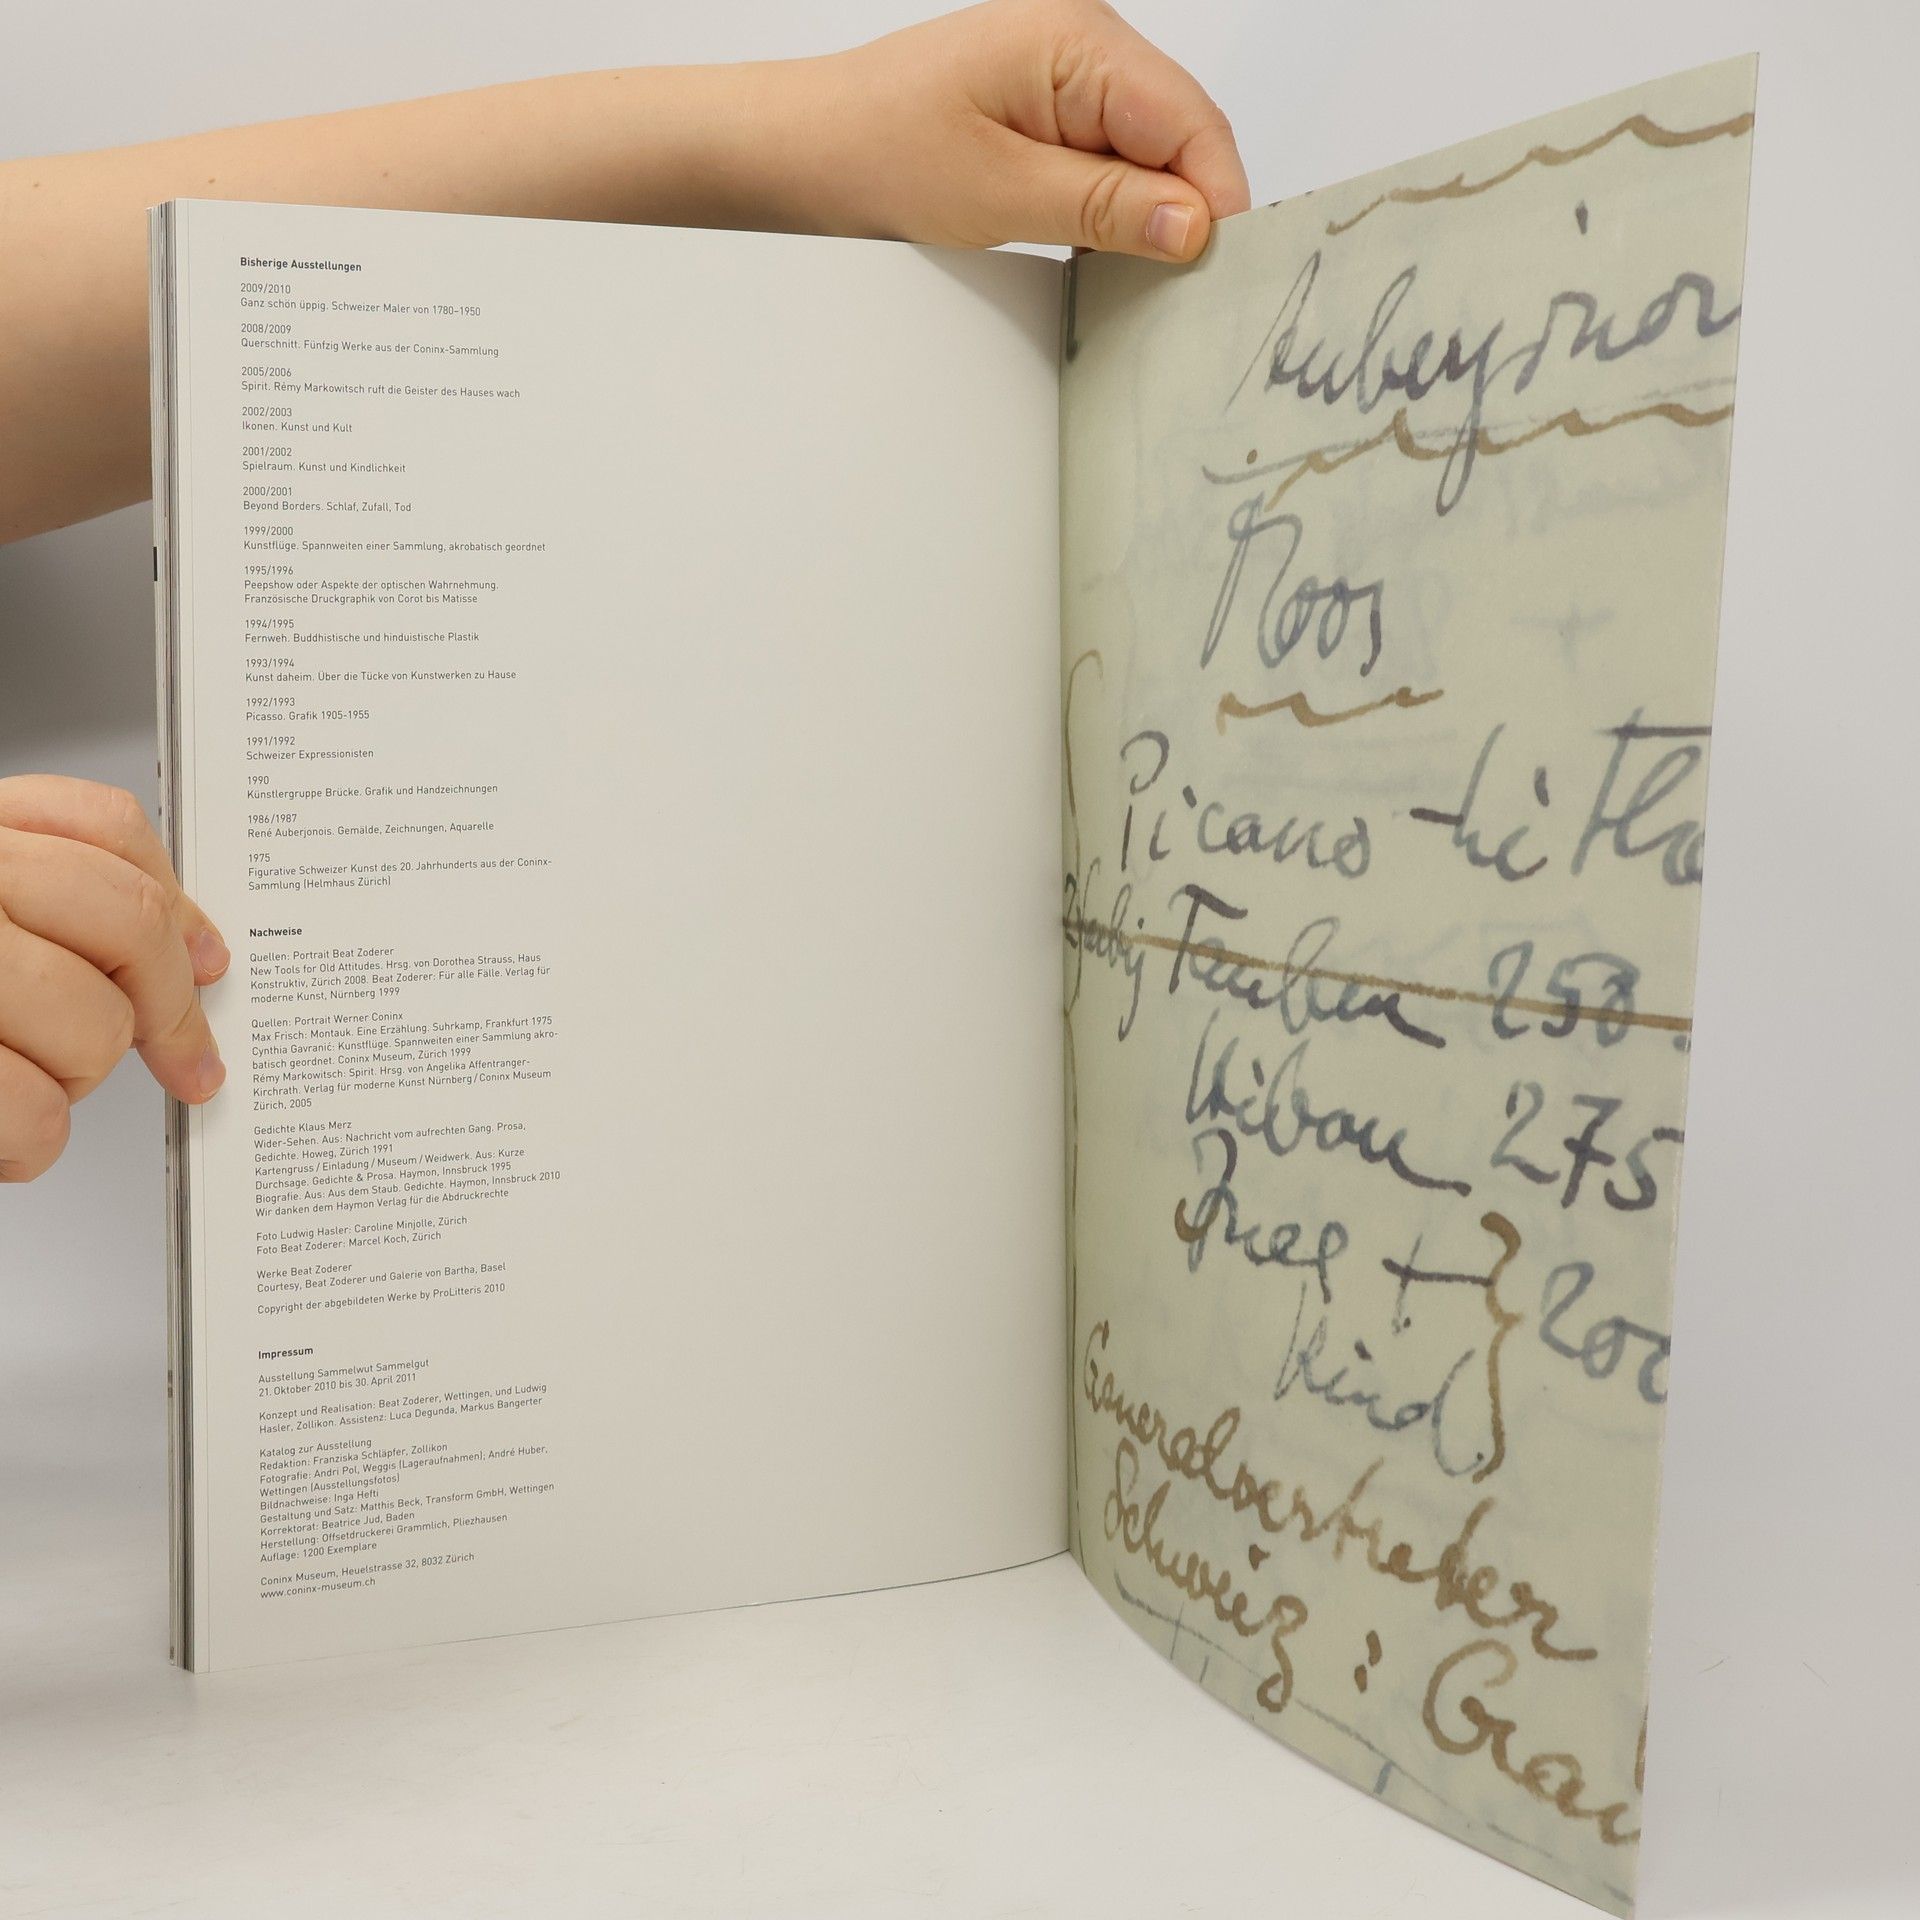 Bisherige Ausstellungen
2009/2010
Ganz schön üppig. Schweizer Maler von 1780–1950
2008/2009
Querschnitt. Fünfzig Werke aus der Coninx-Sammlung
2005/2006
Spirit. Rémy Markowitsch ruft die Geister des Hauses wach
2002/2003
Ikonen. Kunst und Kult
2001/2002
Spielraum. Kunst und Kindlichkeit
2000/2001
Beyond Borders. Schlaf, Zufall, Tod
1999/2000
Kunstflüge. Spannweiten einer Sammlung, akrobatisch geordnet
1995/1996
Peepshow oder Aspekte der optischen Wahrnehmung.
Französische Druckgraphik von Corot bis Matisse
1994/1995
Fernweh. Buddhistische und hinduistische Plastik
1993/1994
Kunst daheim. Über die Tücke von Kunstwerken zu Hause
1992/1993
Picasso. Grafik 1905-1955
1991/1992
Schweizer Expressionisten
1990
Künstlergruppe Brücke. Grafik und Handzeichnungen
1986/1987
René Auberjonois. Gemälde, Zeichnungen, Aquarelle
1975
Figurative Schweizer Kunst des 20. Jahrhunderts aus der Coninx-
Sammlung (Helmhaus Zürich)
Nachweise
Quellen: Portrait Beat Zoderer
New Tools for Old Attitudes. Hrsg. von Dorothea Strauss, Haus
Konstruktiv, Zürich 2008. Beat Zoderer: Für alle Fälle. Verlag für
moderne Kunst, Nürnberg 1999
Quellen: Portrait Werner Coninx
Max Frisch: Montauk. Eine Erzählung. Suhrkamp, Frankfurt 1975
Cynthia Gavranić: Kunstflüge. Spannweiten einer Sammlung akro-
batisch geordnet. Coninx Museum, Zürich 1999
Rémy Markowitsch: Spirit. Hrsg. von Angelika Affentranger-
Kirchrath. Verlag für moderne Kunst Nürnberg / Coninx Museum
Zürich, 2005
Gedichte Klaus Merz
Wider-Sehen. Aus: Nachricht vom aufrechten Gang. Prosa,
Gedichte. Howeg, Zürich 1991
Kartengruss / Einladung / Museum / Weidwerk. Aus: Kurze
Durchsage. Gedichte & Prosa. Haymon, Innsbruck 1995
Biografie. Aus: Aus dem Staub. Gedichte. Haymon, Innsbruck 2010
Wir danken dem Haymon Verlag für die Abdruckrechte
Foto Ludwig Hasler: Caroline Minjolle, Zürich
Foto Beat Zoderer: Marcel Koch, Zürich
Werke Beat Zoderer
Courtesy, Beat Zoderer und Galerie von Bartha, Basel
Copyright der abgebildeten Werke by ProLitteris 2010
Impressum
Ausstellung Sammelwut Sammelgut
21. Oktober 2010 bis 30. April 2011
Konzept und Realisation: Beat Zoderer, Wettingen, und Ludwig
Hasler, Zollikon. Assistenz: Luca Degunda, Markus Bangerter
Katalog zur Ausstellung
Redaktion: Franziska Schläpfer, Zollikon
Fotografie: Andri Pol, Weggis (Lageraufnahmen); André Huber,
Wettingen (Ausstellungsfotos)
Bildnachweise: Inga Hefti
Gestaltung und Satz: Matthis Beck, Transform GmbH, Wettingen
Korrektorat: Beatrice Jud, Baden
Herstellung: Offsetdruckerei Grammlich, Pliezhausen
Auflage: 1200 Exemplare
Coninx Museum, Heuelstrasse 32, 8032 Zürich
www.coninx-museum.ch
Auberjinoi
Roos
Picasso
Tauben 250
Hibou 275
+ 200
Kind
Generalvertreter
Schweiz : Gra